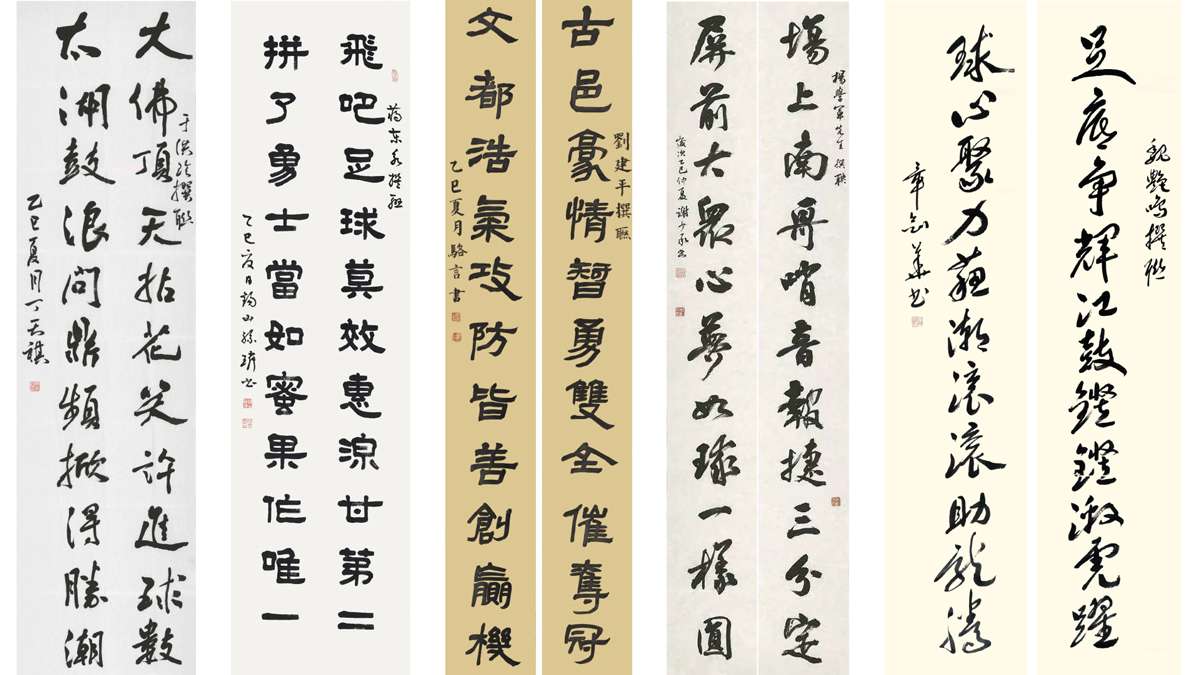 大佛頂天拈花笑許進球數
于洪玲撰聯
太湖鼓浪問鼎頻掀得勝潮
乙巳夏月丁天祺
蒋东永撰联
飛吧足球莫效惠湶甘第二
拼了勇士當如蜜果作唯一
乙巳夏日錫山孫
劉建平撰聯
古邑豪情智勇雙全催奪冠
文都浩氣攻防皆善創贏機
乙巳夏月駱言書
楊學軍先生撰联
場上南哥哨音報捷三分定
屏前大眾心夢如球一樣圓
歲次乙巳仲夏謝少承书
魏艷鳴撰聯
足底争輝江鼓鏗鏗激虎躍
球心聚力蘇潮滾滾助龍騰
章剑華书